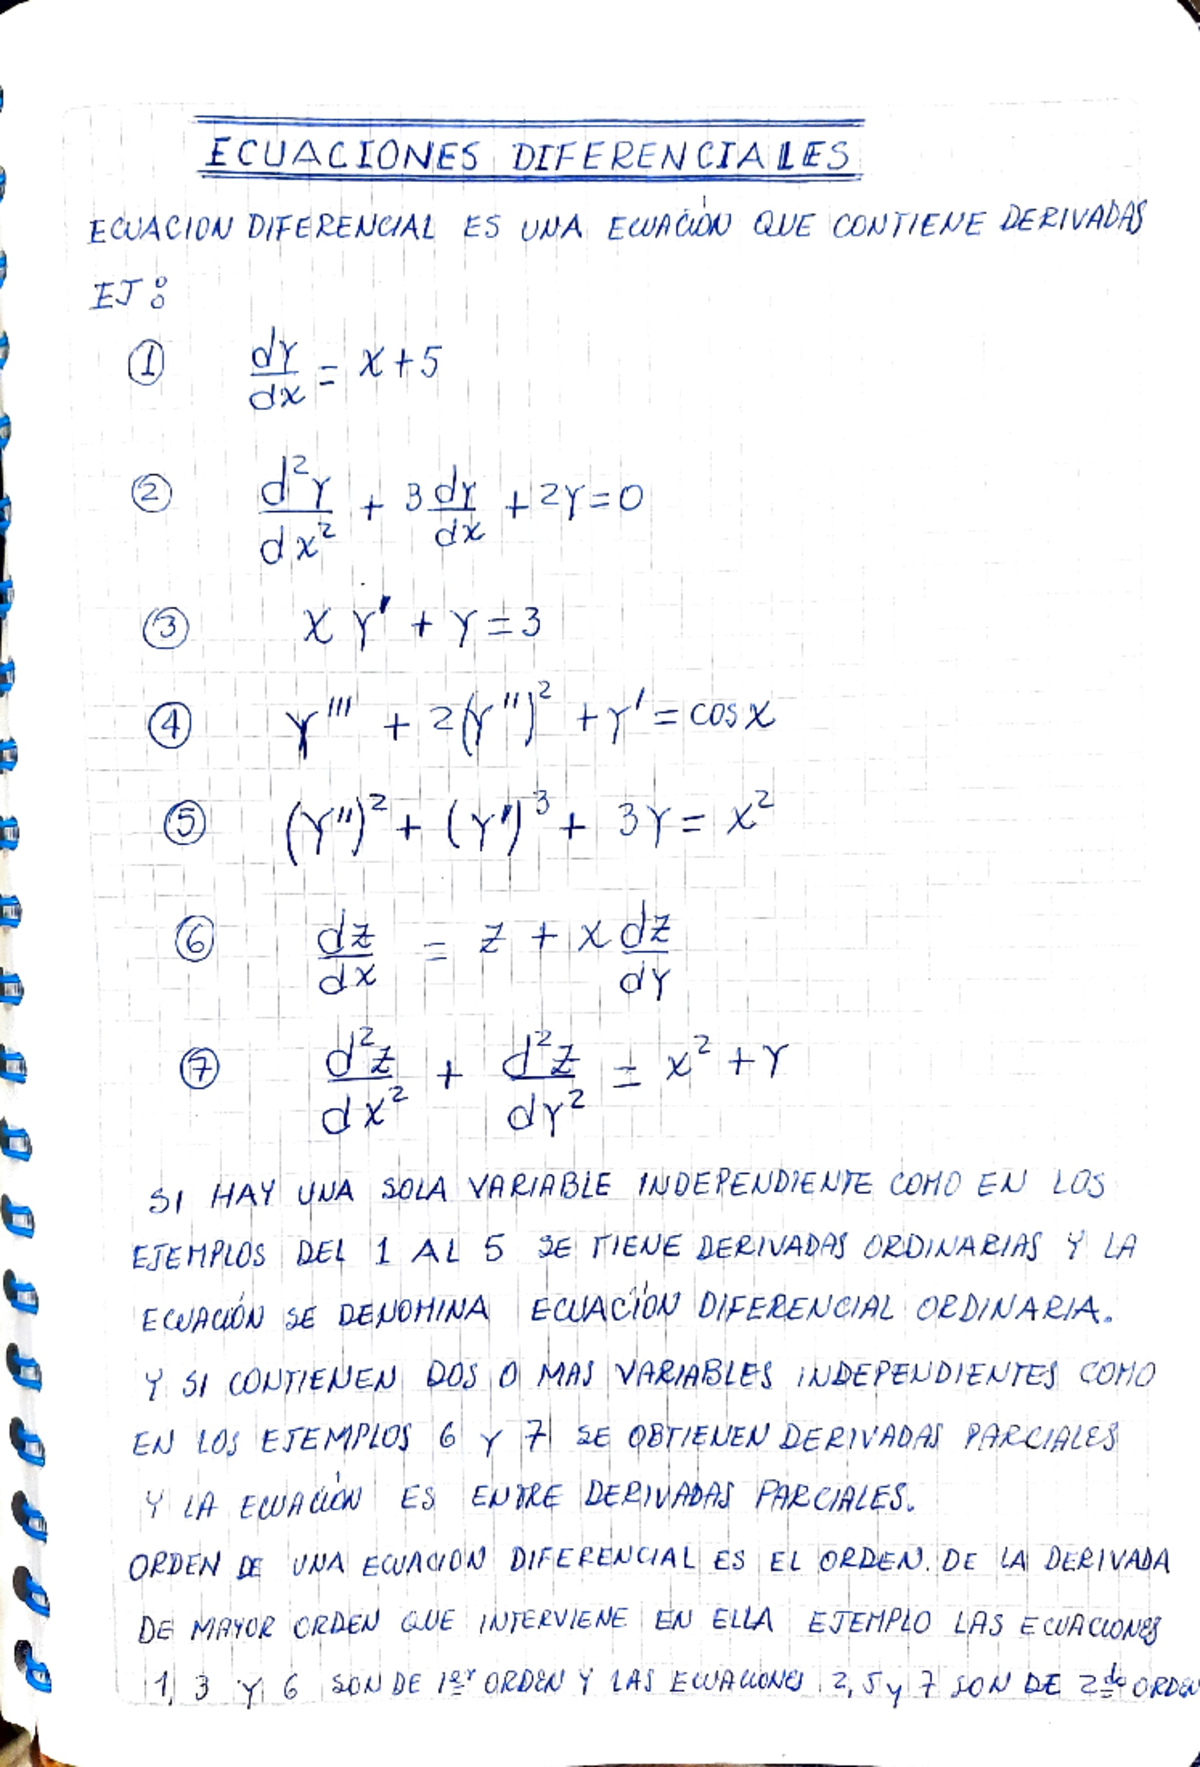 ECUACIONES DIFERENCIALES
ECUACION DIFERENCIAL ES UNA ECUACIÓN QUE CONTIENE DERIVADAS
EJ:
① dy/dx = x+5
② d²y/dx² + 3 dy/dx + 2y=0
③ x y' + y = 3
④ y''' + 2(y'')² + y' = cos x
⑤ (y'')² + (y')³ + 3y = x²
⑥ dz/dx = z + x dz/dy
⑦ d²z/dx² + d²z/dy² = x² + y
SI HAY UNA SOLA VARIABLE INDEPENDIENTE COMO EN LOS
EJEMPLOS DEL 1 AL 5 SE TIENE DERIVADAS ORDINARIAS Y LA
ECUACIÓN SE DENOMINA ECUACIÓN DIFERENCIAL ORDINARIA.
Y SI CONTIENEN DOS O MAS VARIABLES INDEPENDIENTES COMO
EN LOS EJEMPLOS 6 Y 7 SE OBTIENEN DERIVADAS PARCIALES
Y LA ECUACIÓN ES ENTRE DERIVADAS PARCIALES.
ORDEN DE UNA ECUACION DIFERENCIAL ES EL ORDEN. DE LA DERIVADA
DE MAYOR ORDEN QUE INTERVIENE EN ELLA EJEMPLO LAS ECUACIONES
1, 3 Y 6 SON DE 1er ORDEN Y LAS ECUACIONES 2, 5 y 7 SON DE 2do ORDEN